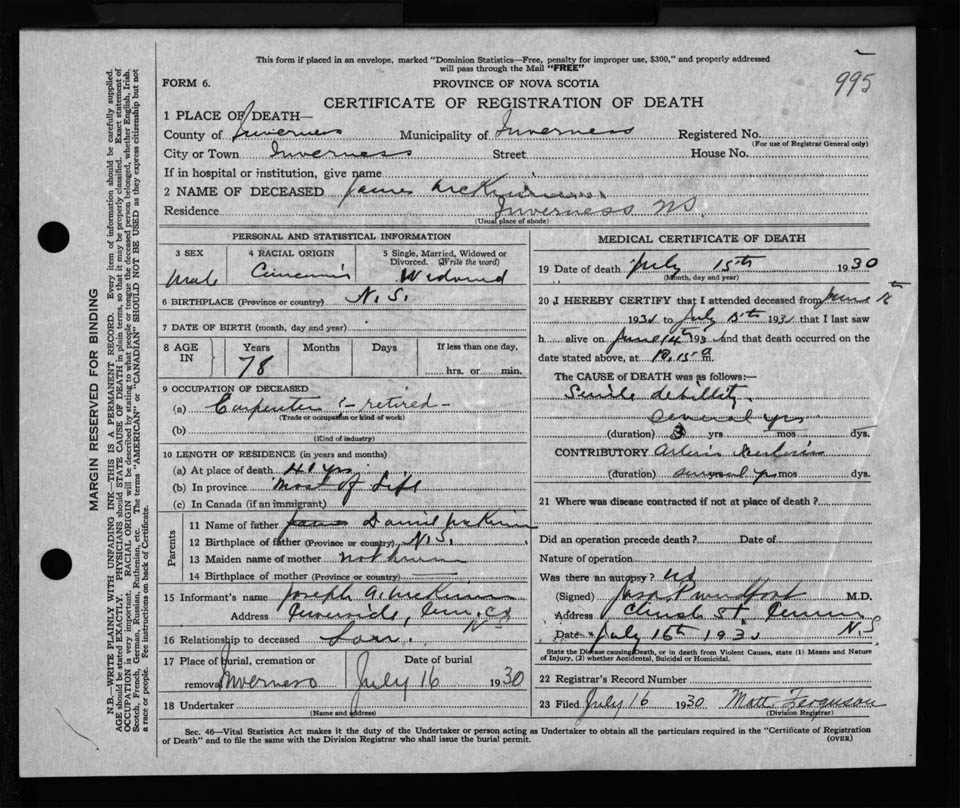 This form if placed in an envelope, marked "Dominion Statistics—Free, penalty for improper use, $300," and properly addressed
will pass through the Mail "FREE"
995
FORM 6.
PROVINCE OF NOVA SCOTIA
CERTIFICATE OF REGISTRATION OF DEATH
1 PLACE OF DEATH—
County of Inverness Municipality of Inverness Registered No.
(For use of Registrar General only)
City or Town Inverness Street House No.
If in hospital or institution, give name
2 NAME OF DECEASED James
Residence Inverness N.S.
(Usual place of abode)
PERSONAL AND STATISTICAL INFORMATION
3 SEX
Male
4 RACIAL ORIGIN
5 Single, Married, Widowed or
Divorced. (Write the word)
6 BIRTHPLACE (Province or country) N.S.
7 DATE OF BIRTH (month, day and year)
8 AGE IN
Years Months Days If less than one day,
78 hrs. or min.
9 OCCUPATION OF DECEASED
(a) Carpenter :- retired-
(Trade or occupation or kind of work)
(b)
(Kind of industry)
10 LENGTH OF RESIDENCE (in years and months)
(a) At place of death yrs
(b) In province Most of Life
(c) In Canada (if an immigrant)
Parents
11 Name of father Daniel
12 Birthplace of father (Province or country) N.S.
13 Maiden name of mother not
14 Birthplace of mother (Province or country)
15 Informant's name Joseph A.
Address N.S.
16 Relationship to deceased Son.
17 Place of burial, cremation or
removal Inverness
Date of burial
July 16 1930
18 Undertaker
(Name and address)
MEDICAL CERTIFICATE OF DEATH
19 Date of death July 15th 1930
(Month, day and year)
20 I HEREBY CERTIFY that I attended deceased from June
193 to July 15th 193 that I last saw
h alive on June 14th 193 and that death occurred on the
date stated above, at m.
The CAUSE of DEATH was as follows:—
Senile debility
several yrs
(duration) yrs mos dys.
CONTRIBUTORY
(duration) several yrs mos dys.
21 Where was disease contracted if not at place of death?
Did an operation precede death? Date of
Nature of operation
Was there an autopsy? no
(Signed) M.D.
Address Church St.
Date July 16th 193 N.S
State the Disease causing Death, or in death from Violent Causes, state (1) Means and Nature
of Injury, (2) whether Accidental, Suicidal or Homicidal.
22 Registrar's Record Number
23 Filed July 16 1930 Matt Ferguson
(Division Registrar)
Sec. 46—Vital Statistics Act makes it the duty of the Undertaker or person acting as Undertaker to obtain all the particulars required in the "Certificate of Registration
of Death" and to file the same with the Division Registrar who shall issue the burial permit. (OVER)
MARGIN RESERVED FOR BINDING
N.B.—WRITE PLAINLY WITH UNFADING INK—THIS IS A PERMANENT RECORD. Every item of information should be carefully supplied.
AGE should be stated EXACTLY. PHYSICIANS should STATE CAUSE OF DEATH in plain terms, so that it may be properly classified. Exact statement of
OCCUPATION is very important. RACIAL ORIGIN will be described by stating to what people or tongue the deceased person belonged, whether English, Irish,
Scotch, French, German, Russian, Ruthenian, etc. The terms "AMERICAN" or "CANADIAN" SHOULD NOT BE USED as they express citizenship but not
a race or people. Fee instructions on back of Certificate.